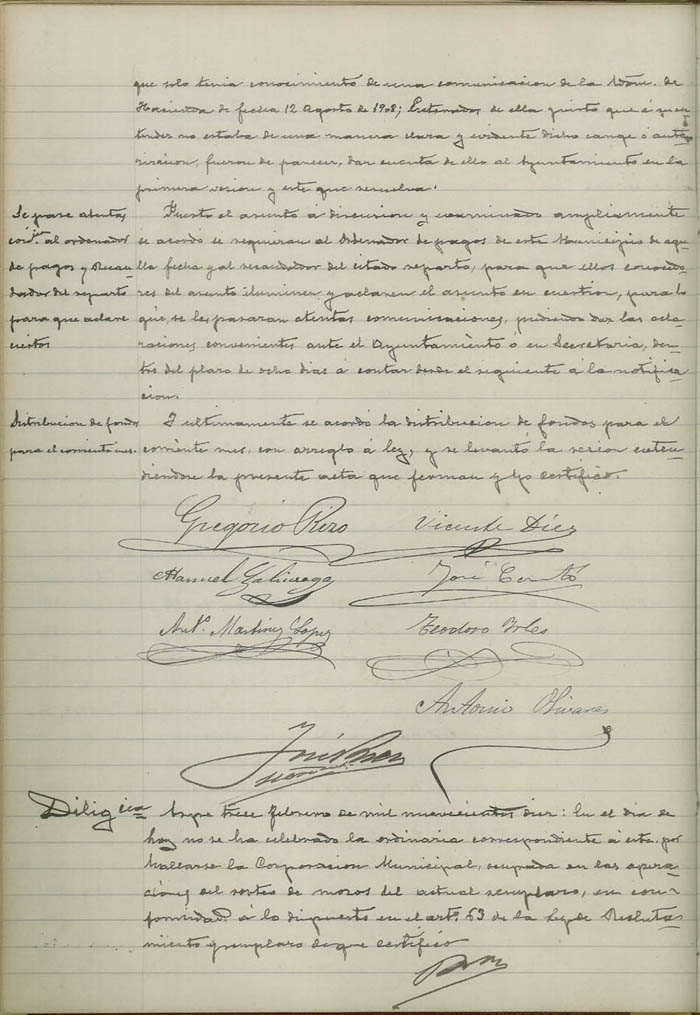 que solo tenia conocimiento de una comunicacion de la Adon. de
Hacienda de fecha 12 Agosto de 1908; Enterados de ella y visto que á su en
tender no estaba de una manera clara y evidente dicho cange ó auto
rizacion, fueron de parecer, dar cuenta de ello al Ayuntamiento en la
primera sesion y este que resuelva.
Se pase atenta
al ordenador
de pagos y Recau
dador del reparto
para que aclare
ciertos
Puesto el asunto á discusion y examinado ampliamente
se acordó se requieran al Ordenador de pagos de este Municipio de aque
lla fecha y al recaudador del citado reparto, para que ellos conocedo
res del asunto iluminen y aclaren el asunto en cuestion, para lo
que, se les pasaran atentas comunicaciones, pudiendo dar las acla
raciones convenientes ante el Ayuntamiento ó en Secretaria, den
tro del plazo de ocho dias á contar desde el siguiente á la notifica
cion.
Distribucion de fondos
para el corriente mes.
Y ultimamente se acordó la distribucion de fondos para el
corriente mes, con arreglo á ley, y se levantó la sesion exten
diendose la presente acta que firman y yo certifico.
Gregorio Rizo Vicente Díez
Manuel Galiniaga José Cerutó
Antº. Martinez Lopez Teodoro Yrles
Antonio Olivares
José
Diligcia
trece febrero de mil nuevecientos diez: En el dia de
hoy no se ha celebrado la ordinaria correspondiente á este, por
hallarse la Corporacion Municipal, ocupada en las opera
ciones del sorteo de mozos del actual reemplazo, en con-
formidad á lo dispuesto en el artº. 63 de la Ley de Recluta
miento y reemplazo de que certifico